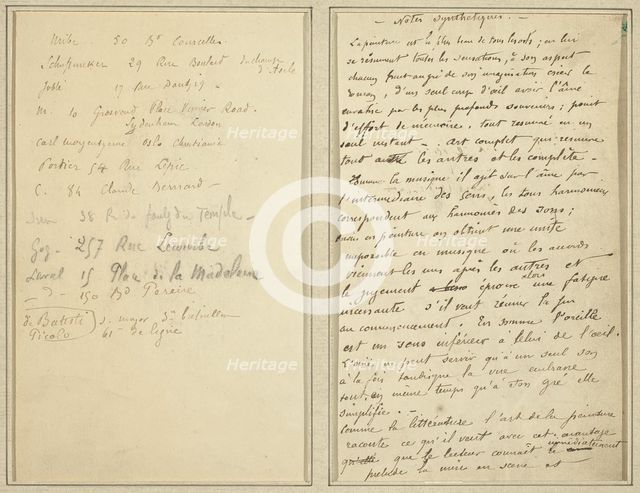 Uribe 50 Bd Courcelles
Schuffnecker 29 Rue Boulard
17 rue
M. 10 Grosvenor Place Verrier Road.
Sydenham London
Carl Oslo Christiania
Portier 54 Rue Lepic
C. 84 Claude Bernard
38 R du faubg du Temple
257 Rue
Laval 15 Place de la Madeleine
150 Bd Pereire
Picolo s. major 3e bataillon
61e de ligne
— Notes Synthétiques. —
La peinture est le plus beau de tous les arts; en lui
se résument toutes les sensations, à son aspect
chacun peut au gré de son imagination créer le
roman, d'un seul coup d'œil avoir l'âme
envahie par les plus profonds souvenirs; point
d'effort de mémoire, tout résumé en un
seul instant — . Art complet qui résume
tout les autres et les complète —
Comme la musique il agit sur l'âme par
l'intermédiaire des sens, les tons harmonieux
correspondent aux harmonies des sons;
mais en peinture on obtient une unité
impossible en musique où les accords
viennent les uns après les autres et
le jugement éprouve alors une fatigue
incessante s'il veut réunir la fin
au commencement. En somme l'oreille
est un sens inférieur à celui de l'œil.
L'ouïe ne peut servir qu'à un seul son
à la fois tandis que la vue embrasse
tout, en même temps qu'à son gré elle
simplifie. —
Comme la littérature l'art de la peinture
raconte ce qu'il veut avec cet avantage
que le lecteur connaît immédiatement le
prélude la mise en scène et
Heritage
Heritage
Heritage
Heritage
Heritage
Heritage